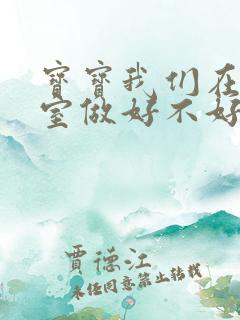 寶寶我们在
室做好不好
賈德江
未经同意禁止转载